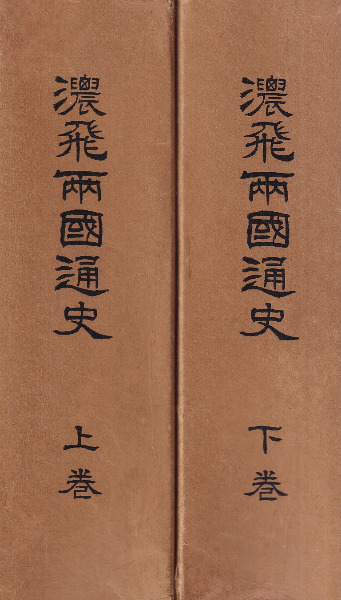 濃飛兩國通史
上巻
濃飛兩國通史
下巻